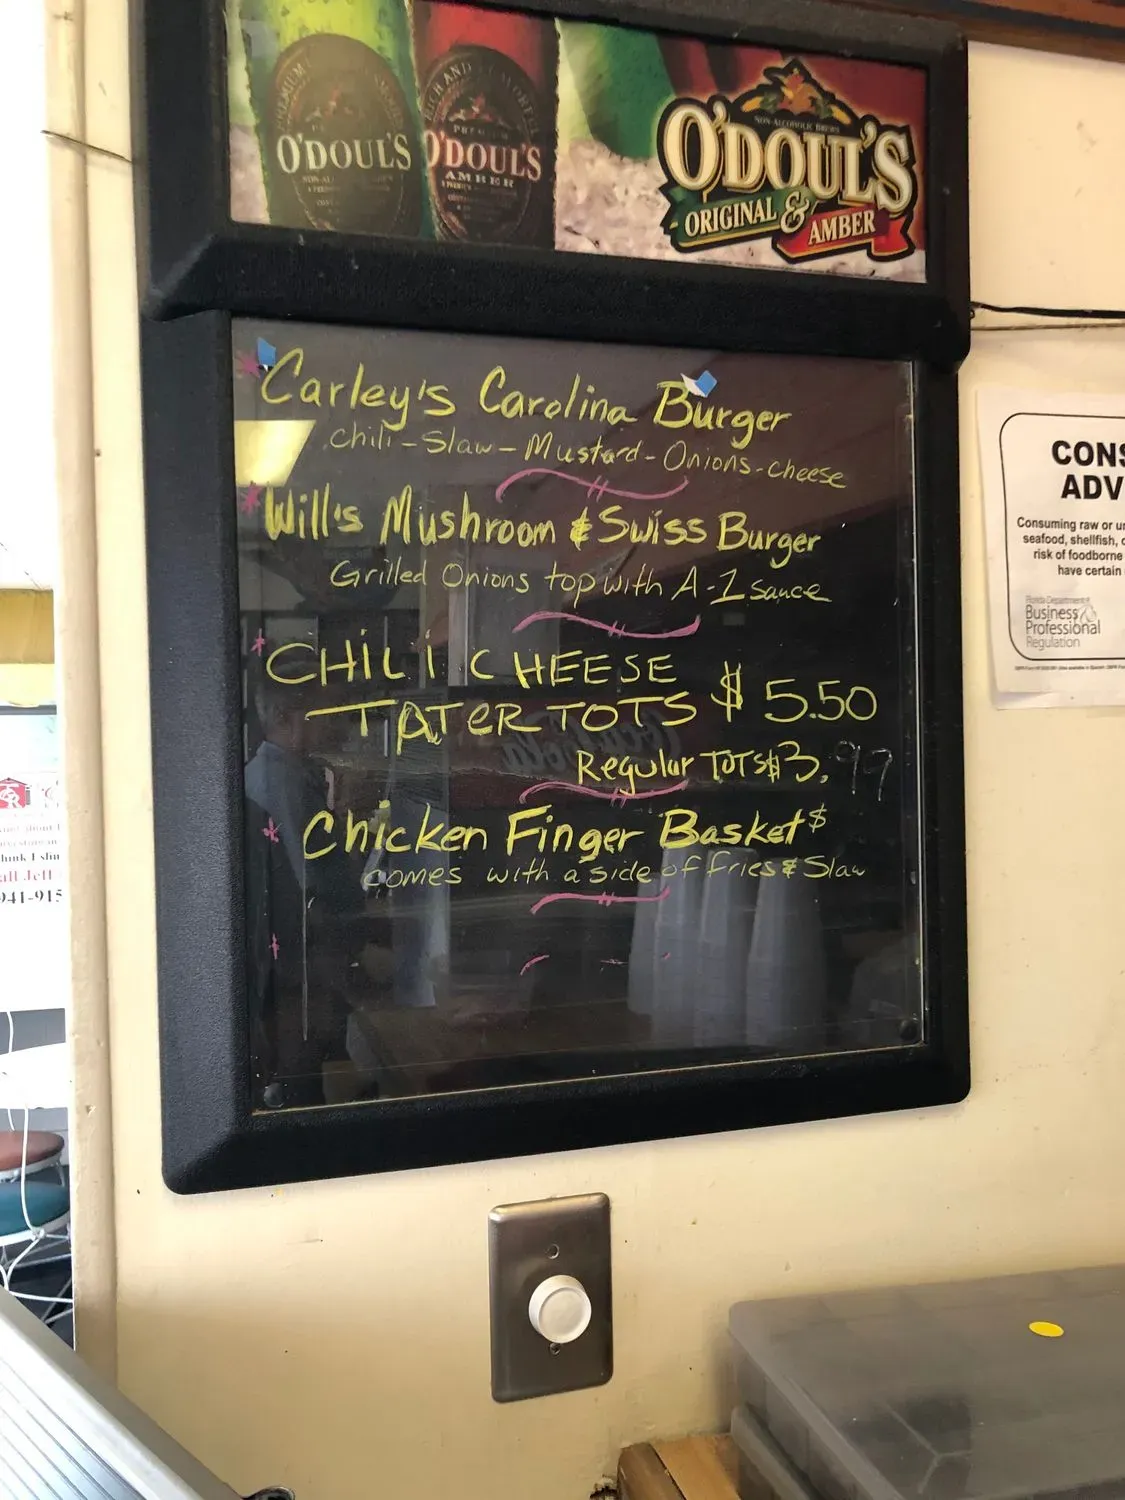 O'DOUL'S
O'DOUL'S
AMBER
NON-ALCOHOLIC BREWS
O'DOUL'S
ORIGINAL & AMBER
* Carley's Carolina Burger
Chili-Slaw-Mustard-Onions-cheese
* Will's Mushroom & Swiss Burger
Grilled Onions top with A-1 sauce
* CHILI CHEESE
TATER TOTS $5.50
Regular TOTS $3.99
* Chicken Finger Basket $
comes with a side of fries & Slaw
*
CONS
ADV
Consuming raw or un
seafood, shellfish,
risk of foodborne
have certain
Florida Department of
Business
Professional
Regulation
941-915